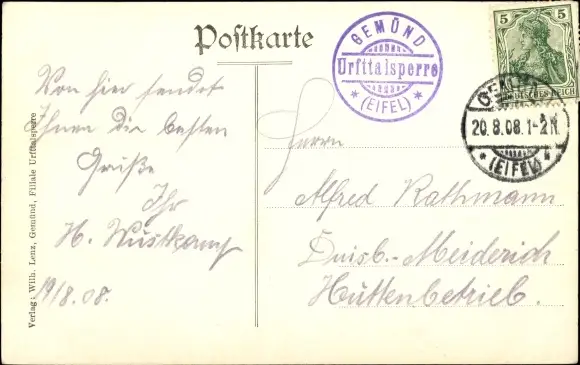 Postkarte
GEMÜND
Urfttalsperre
* (EIFEL) *
5 5
DEUTSCHES REICH
20.8.08.1-2N.
* (EIFEL) *
Von hier sendet
Ihnen die besten
Grüße
Ihr
H. Wüstkamp
19/8.08.
Herrn
Alfred Rathmann
Duisb.-Meiderich
Hüttenbetrieb.
Verlag: Wilh. Lenz, Gemünd, Filiale Urfttalsperre